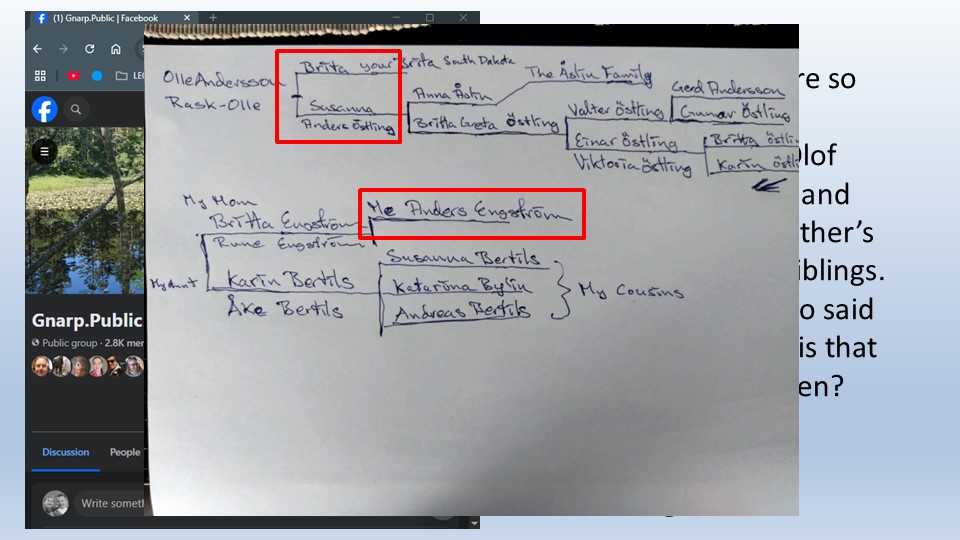 (1) Gnarp.Public | Facebook
LEG
Gnarp.Public
Public group · 2.8K mem
Discussion People
Write someth
re so
Olof
and
ther’s
iblings.
o said
is that
en?
Olle Andersson
Rask-Olle
Brita your Brita South Dakota
Susanna
Anders Östling
Anna Åslin
The Åslin Family
Britta Greta Östling
Valter Östling
Gerd Andersson
Gunnar Östling
Einar Östling
Viktoria Östling
Britta Östli
Karin Östli
My Mom
Britta Engström
Rune Engström
Me Anders Engström
My Aunt
Karin Bertils
Åke Bertils
Susanna Bertils
Katarina Bylin
Andreas Bertils
My Cousins